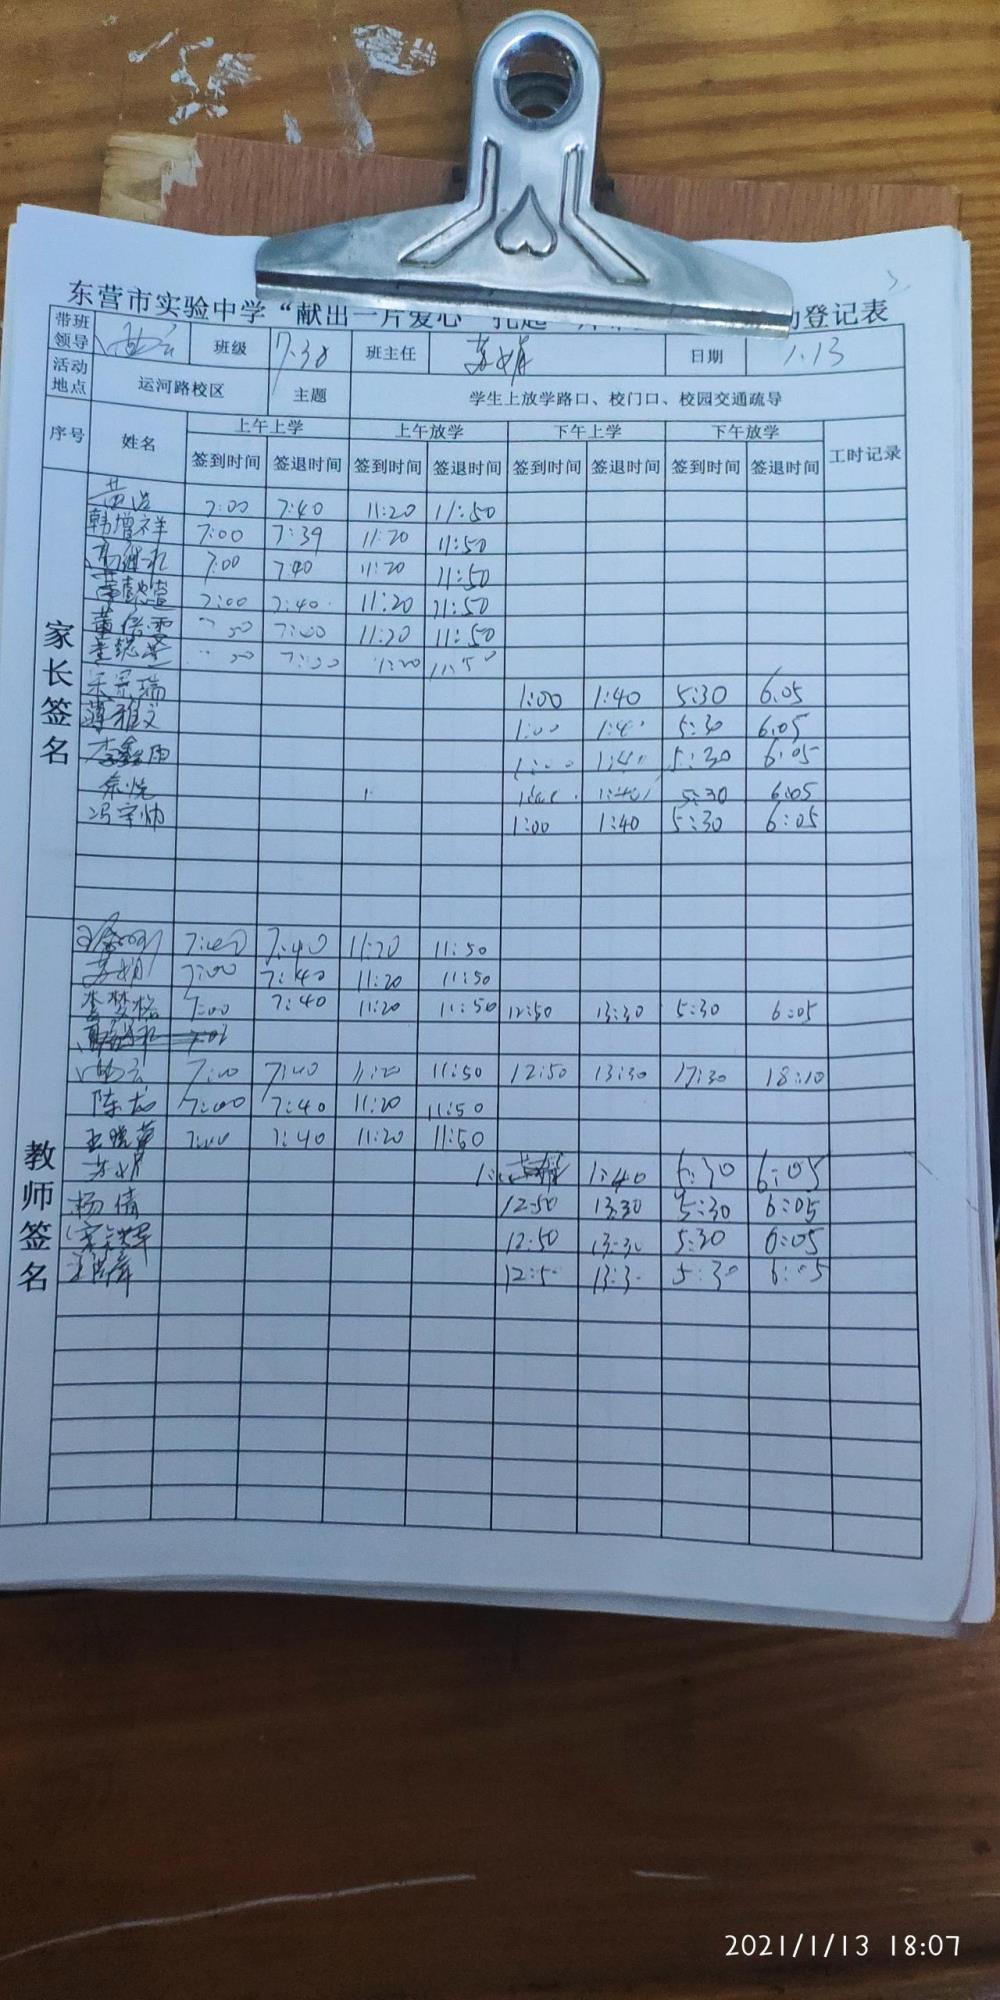 东营市实验中学“献出一片爱心 登记表
带班领导 班级 7.38 班主任 苏娟 日期 1.13
活动地点 运河路校区 主题 学生上放学路口、校门口、校园交通疏导
序号 姓名 上午上学 上午放学 下午上学 下午放学 工时记录
签到时间 签退时间 签到时间 签退时间 签到时间 签退时间 签到时间 签退时间
家长签名
7:00 7:40 11:20 11:50
韩增祥 7:00 7:39 11:20 11:50
7:00 7:40 11:20 11:50
7:00 7:40 11:20 11:50
7:00 11:20 11:50
11:20 11:50
1:00 1:40 5:30 6.05
薄雅文 1:00 5:30 6.05
李鑫雨 5:30 6:05
5:30 6:05
冯宇帅 1:00 1:40 5:30 6:05
教师签名
7:40 11:20 11:50
苏娟 7:00 7:40 11:20 11:50
李梦格 7:00 7:40 11:20 11:50 12:50 13:30 5:30 6:05
7:00 7:40 11:20 11:50 12:50 13:30 17:30 18:10
陈龙 7:00 7:40 11:20 11:50
王晓华 7:00 7:40 11:20 11:50
苏娟 1:40 5:30 6:05
杨倩 12:50 13:30 5:30 6:05
12:50 13:30 5:30 6:05
5:30 6:05
2021/1/13 18:07